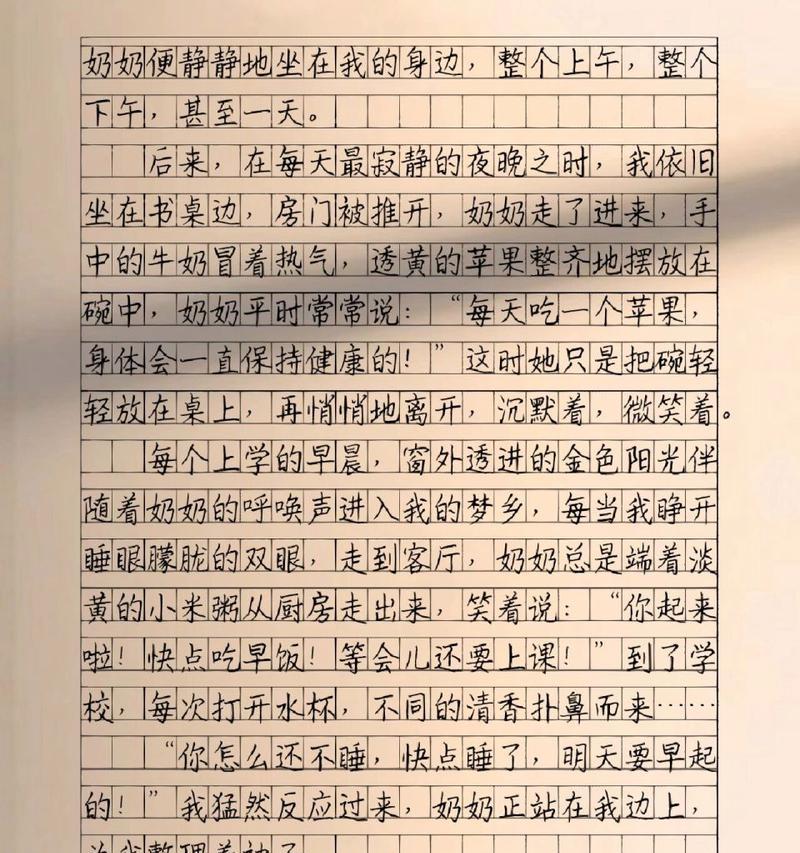 奶奶便静静地坐在我的身边，整个上午，整个
下午，甚至一天。
后来，在每天最寂静的夜晚之时，我依旧
坐在书桌边，房门被推开，奶奶走了进来，手
中的牛奶冒着热气，透黄的苹果整齐地摆放在
碗中，奶奶平时常常说：“每天吃一个苹果，
身体会一直保持健康的！”这时她只是把碗轻
轻放在桌上，再悄悄地离开，沉默着，微笑着。
每个上学的早晨，窗外透进的金色阳光伴
随着奶奶的呼唤声进入我的梦乡，每当我睁开
睡眼朦胧的双眼，走到客厅，奶奶总是端着淡
黄的小米粥从厨房走出来，笑着说：“你起来
啦！快点吃早饭！等会儿还要上课！”到了学
校，每次打开水杯，不同的清香扑鼻而来……
“你怎么还不睡，快点睡了，明天要早起
的！”我猛然反应过来，奶奶正站在我边上，
为我整理着被子